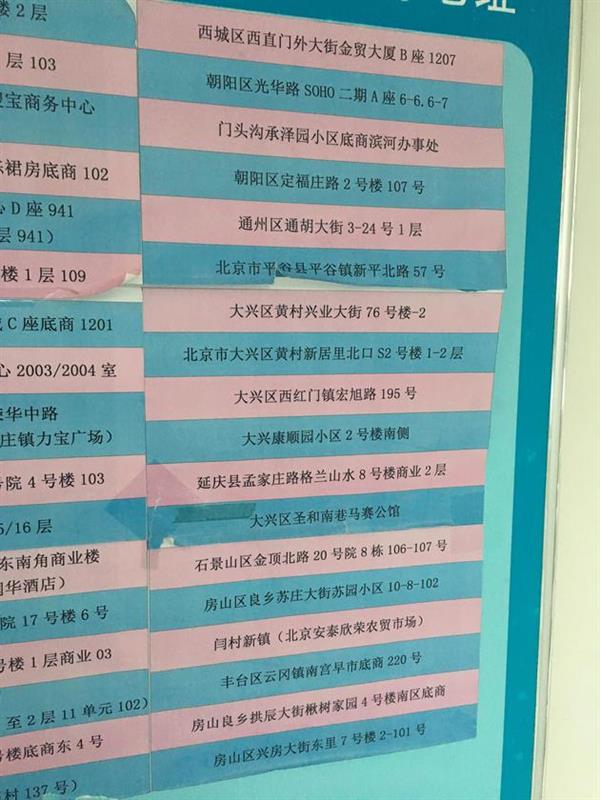 楼 2 层
层 103
宝商务中心
裙房底商 102
心 D 座 941
层 941）
楼 1 层 109
C 座底商 1201
心 2003/2004 室
荣华中路
庄镇力宝广场）
号院 4 号楼 103
5/16 层
东南角商业楼
华酒店）
院 17 号楼 6 号
号楼 1 层商业 03
至 2 层 11 单元 102）
号楼底商东 4 号
村 137 号）
西城区西直门外大街金贸大厦 B 座 1207
朝阳区光华路 SOHO 二期 A 座 6-6.6-7
门头沟承泽园小区底商滨河办事处
朝阳区定福庄路 2 号楼 107 号
通州区通胡大街 3-24 号 1 层
北京市平谷县平谷镇新平北路 57 号
大兴区黄村兴业大街 76 号楼-2
北京市大兴区黄村新居里北口 S2 号楼 1-2 层
大兴区西红门镇宏旭路 195 号
大兴康顺园小区 2 号楼南侧
延庆县孟家庄路格兰山水 8 号楼商业 2 层
大兴区圣和南巷马赛公馆
石景山区金顶北路 20 号院 8 栋 106-107 号
房山区良乡苏庄大街苏园小区 10-8-102
闫村新镇（北京安泰欣荣农贸市场）
丰台区云冈镇南宫早市底商 220 号
房山良乡拱辰大街楸树家园 4 号楼南区底商
房山区兴房大街东里 7 号楼 2-101 号